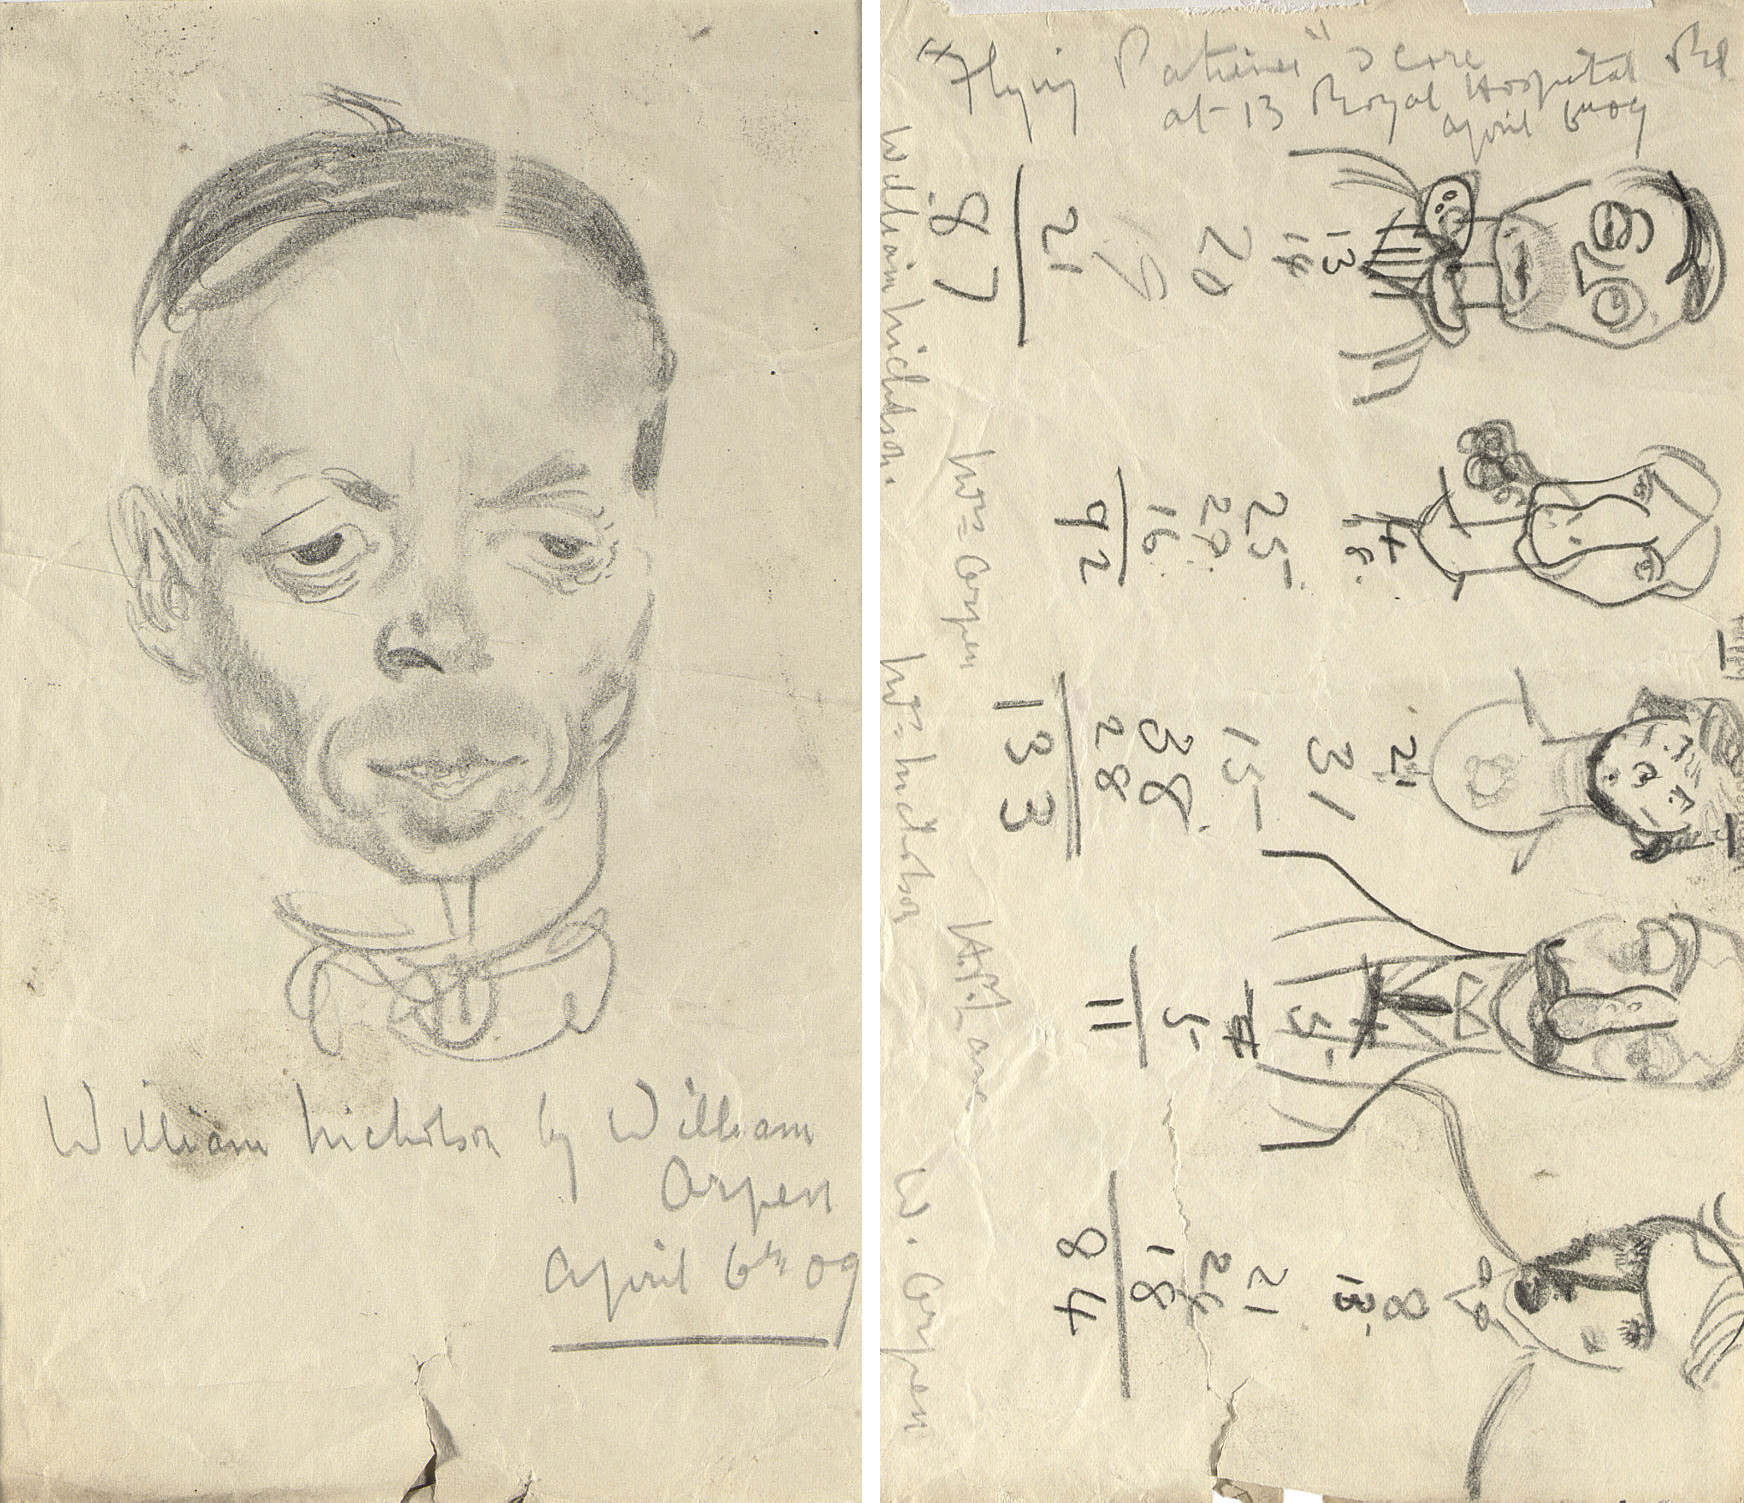 William Nicholson by William
Orpen
April 6th 09
"Flying Patience" Score
at 13 Royal Hospital Rd
April 6th 09
13
14
20
19
21
87
William Nicholson.
25
29
16
92
Mrs Orpen
21
31
15
38
28
133
Mrs Nicholson
5
11
H.P. Lane
8
13
21
24
18
84
W. Orpen